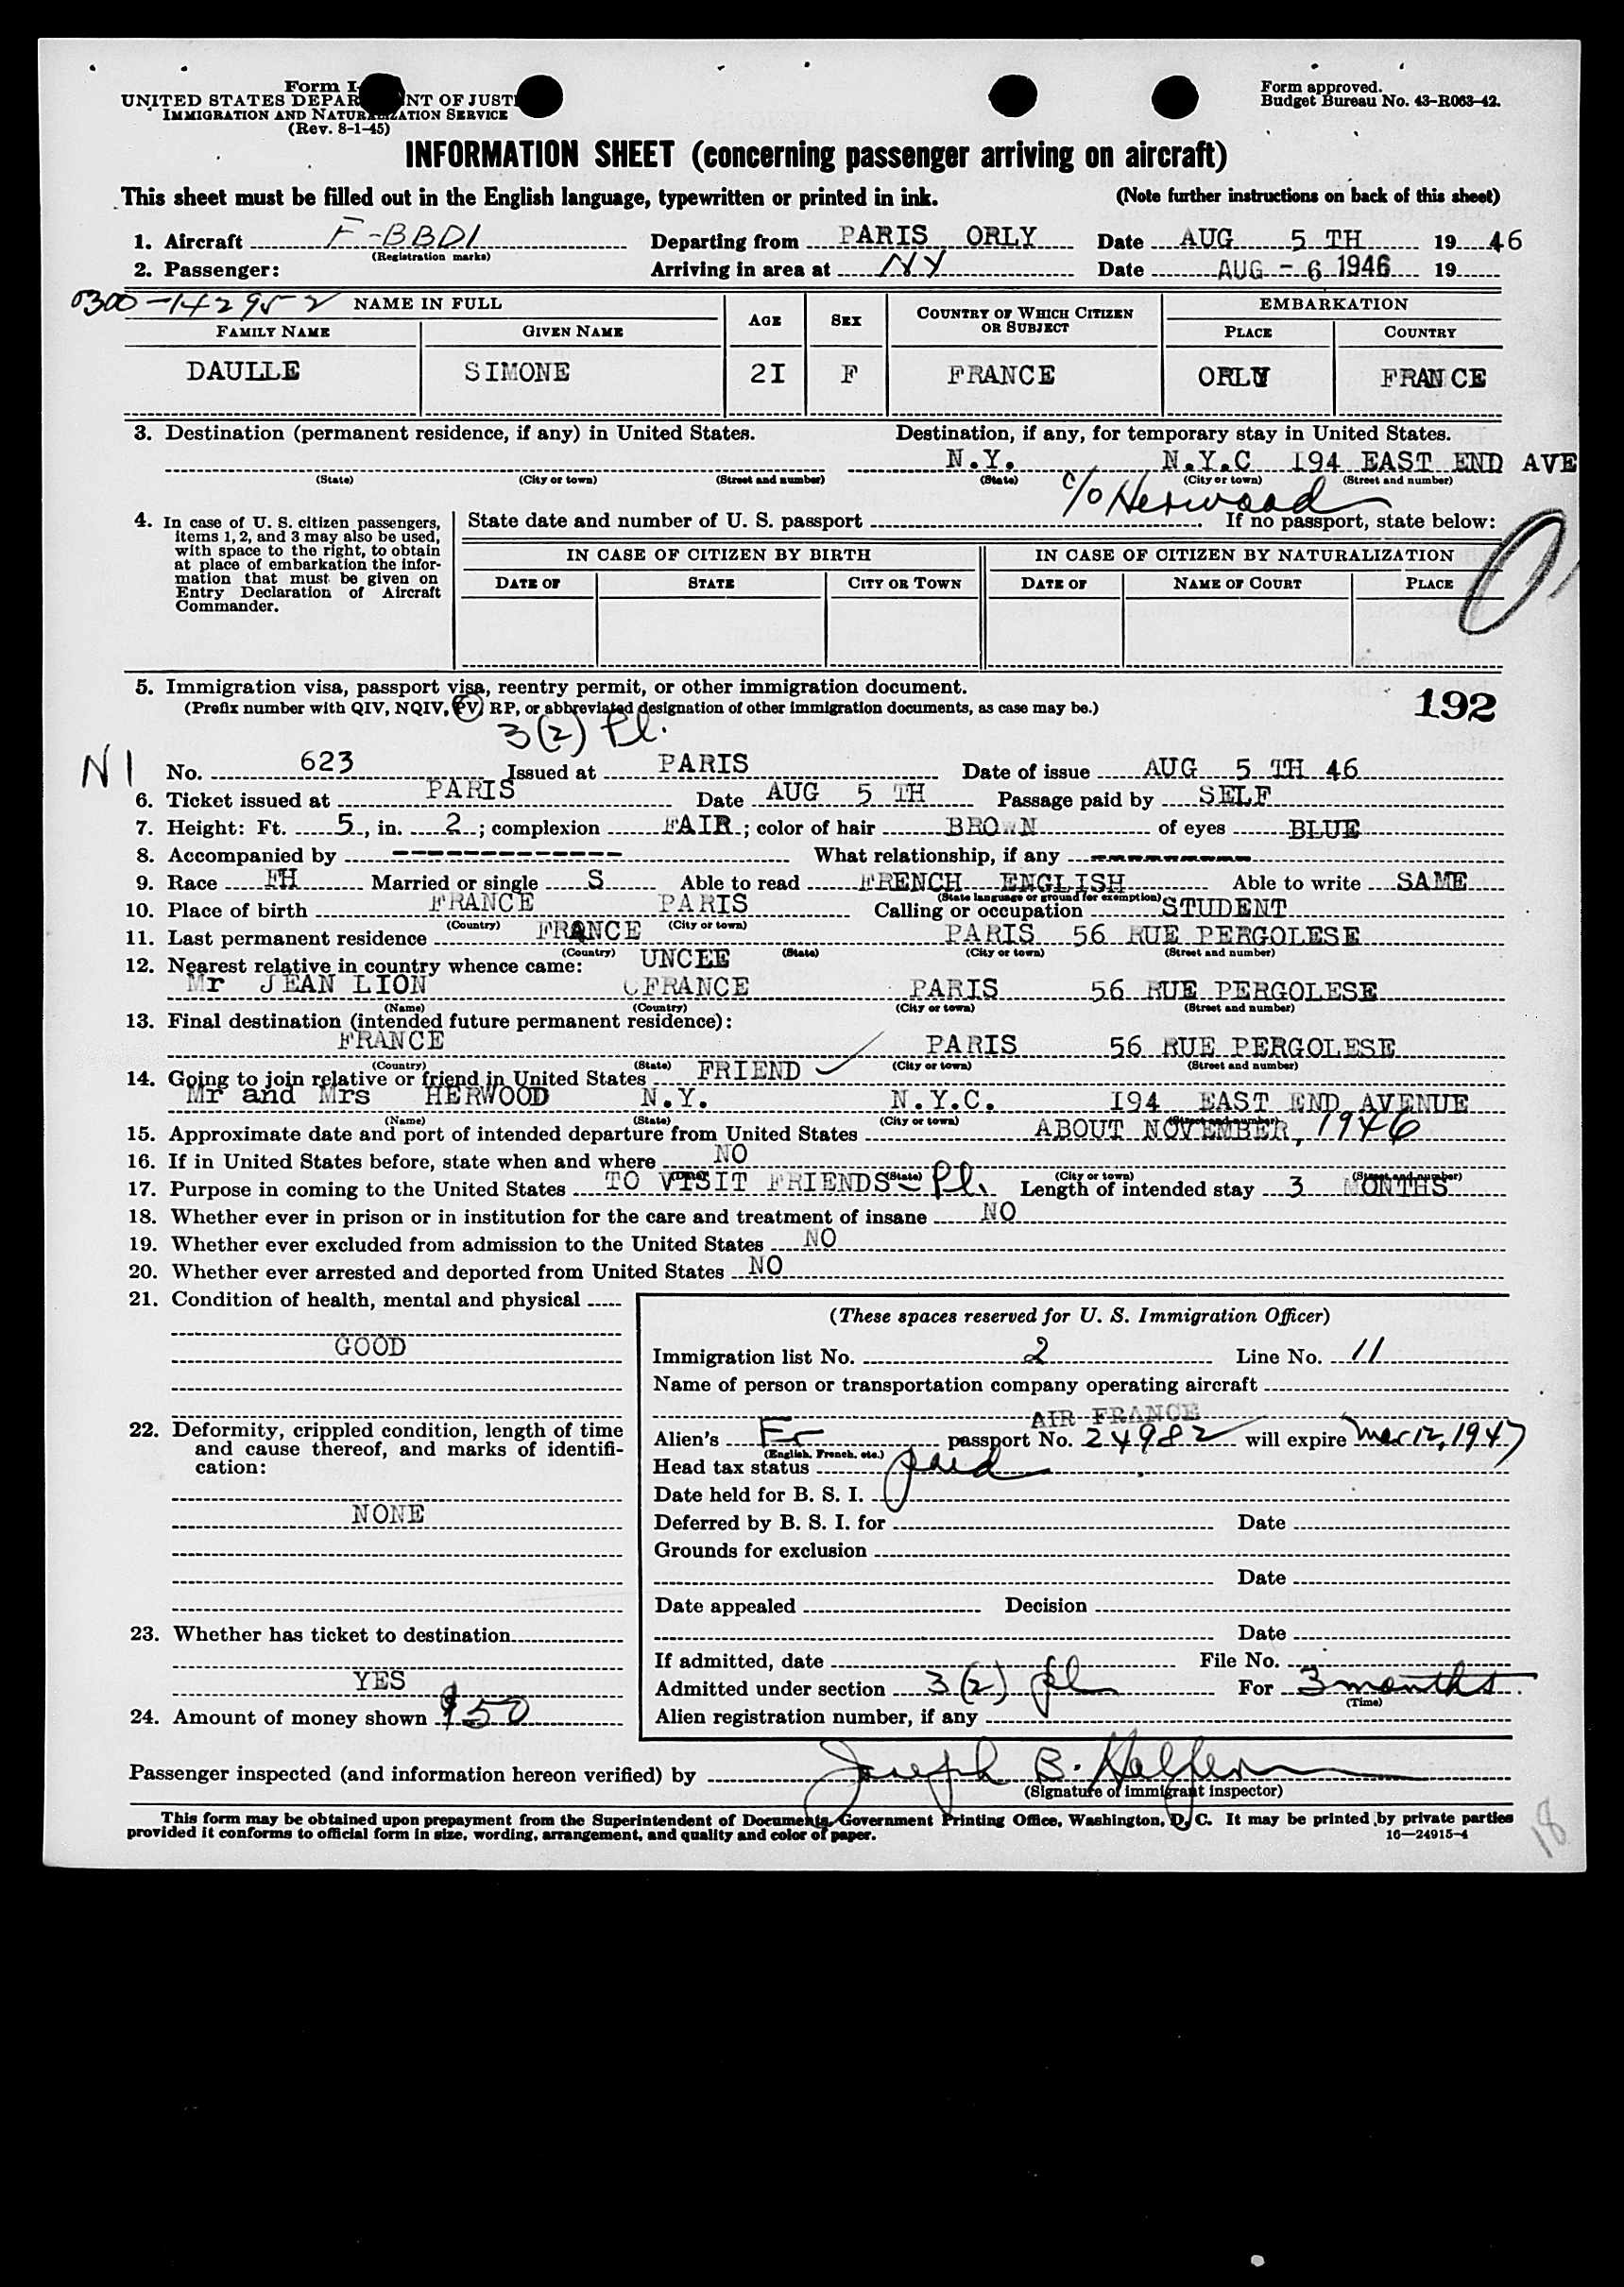 Form I-
UNITED STATES DEPAR NT OF JUST
IMMIGRATION AND NATURALIZATION SERVICE
(Rev. 8-1-45)
Form approved.
Budget Bureau No. 43-R063-42.
INFORMATION SHEET (concerning passenger arriving on aircraft)
This sheet must be filled out in the English language, typewritten or printed in ink. (Note further instructions on back of this sheet)
1. Aircraft F-BBDI Departing from PARIS ORLY Date AUG 5 TH 19 46
(Registration marks)
2. Passenger: Arriving in area at NY Date AUG - 6 1946 19
0300-142952 NAME IN FULL AGE SEX COUNTRY OF WHICH CITIZEN OR SUBJECT EMBARKATION
FAMILY NAME GIVEN NAME PLACE COUNTRY
DAULLE SIMONE 2I F FRANCE ORLY FRANCE
3. Destination (permanent residence, if any) in United States. Destination, if any, for temporary stay in United States.
N.Y. N.Y.C 194 EAST END AVE
(State) (City or town) (Street and number) (State) (City or town) (Street and number)
c/o Herwood
4. In case of U. S. citizen passengers, items 1, 2, and 3 may also be used, with space to the right, to obtain at place of embarkation the information that must be given on Entry Declaration of Aircraft Commander.
State date and number of U. S. passport If no passport, state below:
IN CASE OF CITIZEN BY BIRTH IN CASE OF CITIZEN BY NATURALIZATION
DATE OF STATE CITY OR TOWN DATE OF NAME OF COURT PLACE
5. Immigration visa, passport visa, reentry permit, or other immigration document.
(Prefix number with QIV, NQIV, PV, RP, or abbreviated designation of other immigration documents, as case may be.)
192
3(2) Pl.
N1 No. 623 Issued at PARIS Date of issue AUG 5 TH 46
6. Ticket issued at PARIS Date AUG 5 TH Passage paid by SELF
7. Height: Ft. 5, in. 2; complexion FAIR; color of hair BROWN of eyes BLUE
8. Accompanied by ---------------- What relationship, if any -----------
9. Race FH Married or single S Able to read FRENCH ENGLISH Able to write SAME
(State language or ground for exemption)
10. Place of birth FRANCE PARIS Calling or occupation STUDENT
(Country) (City or town)
11. Last permanent residence FRANCE PARIS 56 RUE PERGOLESE
(Country) (State) (City or town) (Street and number)
12. Nearest relative in country whence came: UNCLE
Mr JEAN LION FRANCE PARIS 56 RUE PERGOLESE
(Name) (Country) (City or town) (Street and number)
13. Final destination (intended future permanent residence):
FRANCE PARIS 56 RUE PERGOLESE
(Country) (State) (City or town) (Street and number)
14. Going to join relative or friend in United States FRIEND
Mr and Mrs HERWOOD N.Y. N.Y.C. I94 EAST END AVENUE
(Name) (State) (City or town) (Street and number)
15. Approximate date and port of intended departure from United States ABOUT NOVEMBER, 1946
16. If in United States before, state when and where NO
(State) (City or town) (Street and number)
17. Purpose in coming to the United States TO VISIT FRIENDS - Pl. Length of intended stay 3 MONTHS
18. Whether ever in prison or in institution for the care and treatment of insane NO
19. Whether ever excluded from admission to the United States NO
20. Whether ever arrested and deported from United States NO
21. Condition of health, mental and physical
GOOD
22. Deformity, crippled condition, length of time and cause thereof, and marks of identification:
NONE
23. Whether has ticket to destination
YES
24. Amount of money shown $50
(These spaces reserved for U. S. Immigration Officer)
Immigration list No. 2 Line No. 11
Name of person or transportation company operating aircraft
AIR FRANCE
Alien's Fr passport No. 24982 will expire Mar 12, 1947
(English, French, etc.)
Head tax status paid
Date held for B. S. I.
Deferred by B. S. I. for Date
Grounds for exclusion
Date
Date appealed Decision
Date
If admitted, date File No.
Admitted under section 3(2) pl For 3 months.
(Time)
Alien registration number, if any
Passenger inspected (and information hereon verified) by Joseph B. Halfern
(Signature of immigrant inspector)
This form may be obtained upon prepayment from the Superintendent of Documents, Government Printing Office, Washington, D. C. It may be printed by private parties
provided it conforms to official form in size, wording, arrangement, and quality and color of paper. 16—24915-4
18